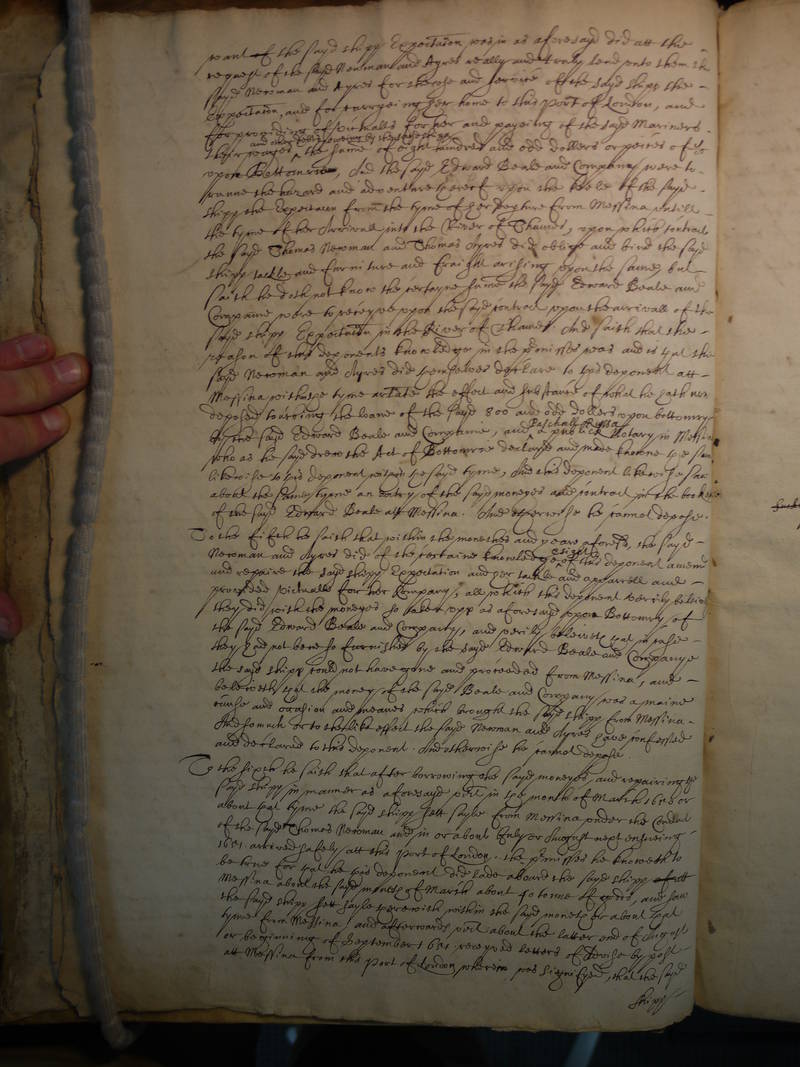 want of the sayd shipp Expectation was in as aforesayd did att the
request of the sayd Newman and Ayres really and truly lend unto them the
sayd Newman and Ayres for the use and service of the sayd shipp the
Expectation, and for carryeing her home to this Port of London, and
for provideing of victualls for her and payeing of the sayd Mariners
their wages the summe of eight hundred and odd dollers or peeces of 8o
upon Bottomrie, And the sayd Edward Beale and Company were to
runne the hazard and adventure thereof upon the keele of the sayd
shipp the Expectation from the tyme of her depture from Messina untill
the tyme of her Arrivall into the River of Thames, upon which contract
the sayd Thomas Newman and Thomas Ayres did oblige and bind the sayd
shipp tackle and furniture and fraight arising upon the same, but
saith he doth not know the certayne summe the sayd Edward Beale and
Companie were to receyve upon the sayd contract upon the arrivall of the
sayd shipp Expectation in the River of Thames And saith that the
reason of this deponents knowledge in the premisses was and is that the
sayd Newman and Ayres did themselves declare to this deponent att
Messina within the tyme arlate the effect and substance of what he hath now
deposed touching the loane of the sayd 800 and odd dollers upon bottomry
by the sayd Edward Beale and Companie, and a publick Notary in Messina
who as he sayd drew the Act of Bottomrie declared and made knowne the same
likewise to this deponent within the sayd tyme, And this deponent likewise saw
about the same tyme an entry of the sayd moneyes and contract in the bookes
of the sayd Edward Beale att Messina. And otherwise he cannot depose.
To the fifth he saith that within the monethes and yeare aforesd, the sayd
Newman and Ayres did of the certaine knowledge of this deponent amend
and repaire the sayd shipp Expectation and her tackle and apparrell and
provided victualls for her Company, all which this deponent verily beleeveth
they did with the moneyes so taken upp as aforesayd upon Bottomry of
the sayd Edward Beale and Company, and verily beleeveth that in case
they had not bene so furnished by the sayd Edward Beale and Companye
the sayd shipp could not have gone and proceeded from Messina, and
beleeveth that the money of the sayd Beale and Company was a maine
cause and occasion and meanes which brought the sayd shipp from Messina
And so much or to the like effect the sayd Newman and Ayres have confessed
and declared to this deponent. And otherwise he cannot depose
To the sixth he saith that after borrowing the sayd moneyes, and repairing the
sayd shipp in manner as aforesayd vizt in the month of March 1650 or
about that tyme the sayd shipp sett sayle from Messina under the Conduct
of the sayd Thomas Newman and in or about July or August next ensueing
1651 arrived safely att this Port of London. the premisses he knoweth to
be true for that he this deponent did lade aboard the sayd shipp att
Messina about the sayd month of March about 50 tonne of goods, and saw
the sayd shipp sett sayle therewith within the sayd moneth or about that
tyme from Messina, and afterwards vizt about the latter end of August
or beginning of September 1651 receyved letters of Advise by post
att Messina from this Port of London wherein was signifyed, that the sayd
shipp